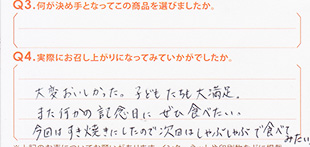 Q3.何が決め手となってこの商品を選びましたか。
Q4.実際にお召し上がりになってみていかがでしたか。
大変おいしかった。子どもたちも大満足。
また何かの記念日にぜひ食べたい。
今回はすき焼きにしたので次回はしゃぶしゃぶで食べてみたい